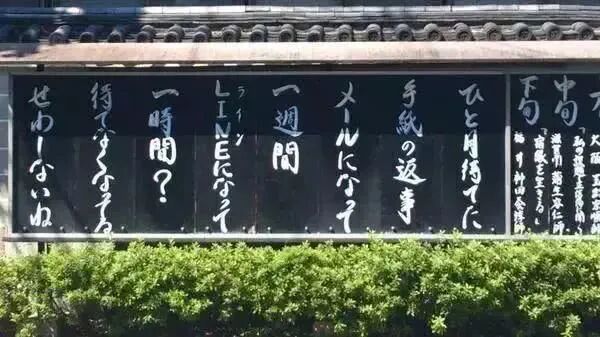 中旬
下旬
ひと月待てた
手紙の返事
メールになって
一週間
ライン
LINEになって
一時間？
待てなくなってる
せわしないね